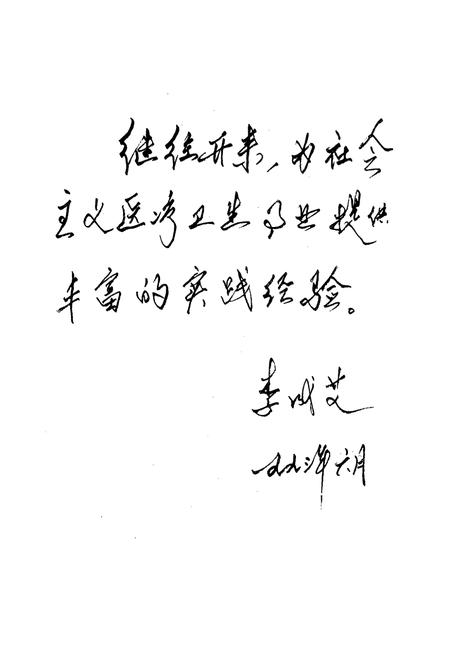 继往开来，为社会
主义医疗卫生事业提供
丰富的实践经验。
李成艾
九九三年六月